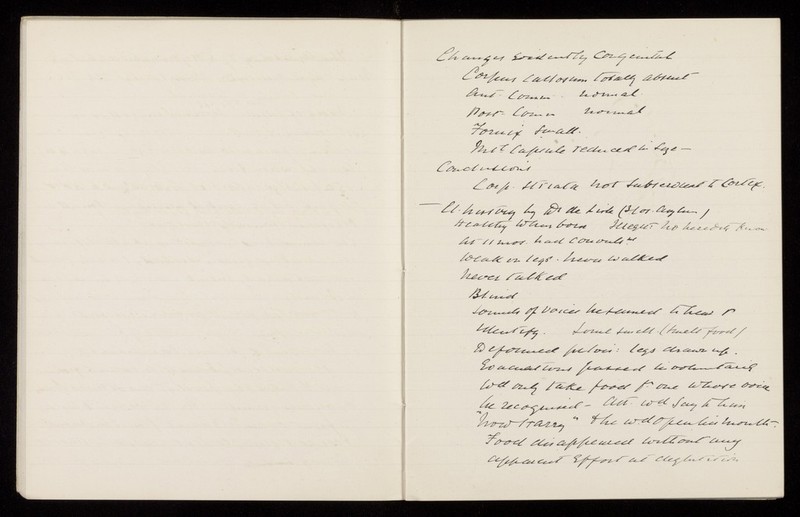 Changes evidently Congenital
Corpus Callosum totally absent
Ant. Comm. normal
Post. Comm normal
Fornix small.
Intl Capsule reduced in size —
Conclusions
Corp. striata not subservient to Cortex.
— Cl. history by Dr de Lisle ( Asylum)
Healthy when born Illegit no heredity
At 11 mos. had convulsns
Weak on legs - never walked
Never talked
Blind
Sounds of voices he seemed to hear &
identify. Some smell (smelt food)
Deformed pelvis: legs drawn up.
Evacuations passed involuntarily
Wd only take food fr one whose voice
he recognised - Att. wd say to him
"Now Harry" & he wd open his mouth.
Food disappeared without any
apparent effort at deglutition